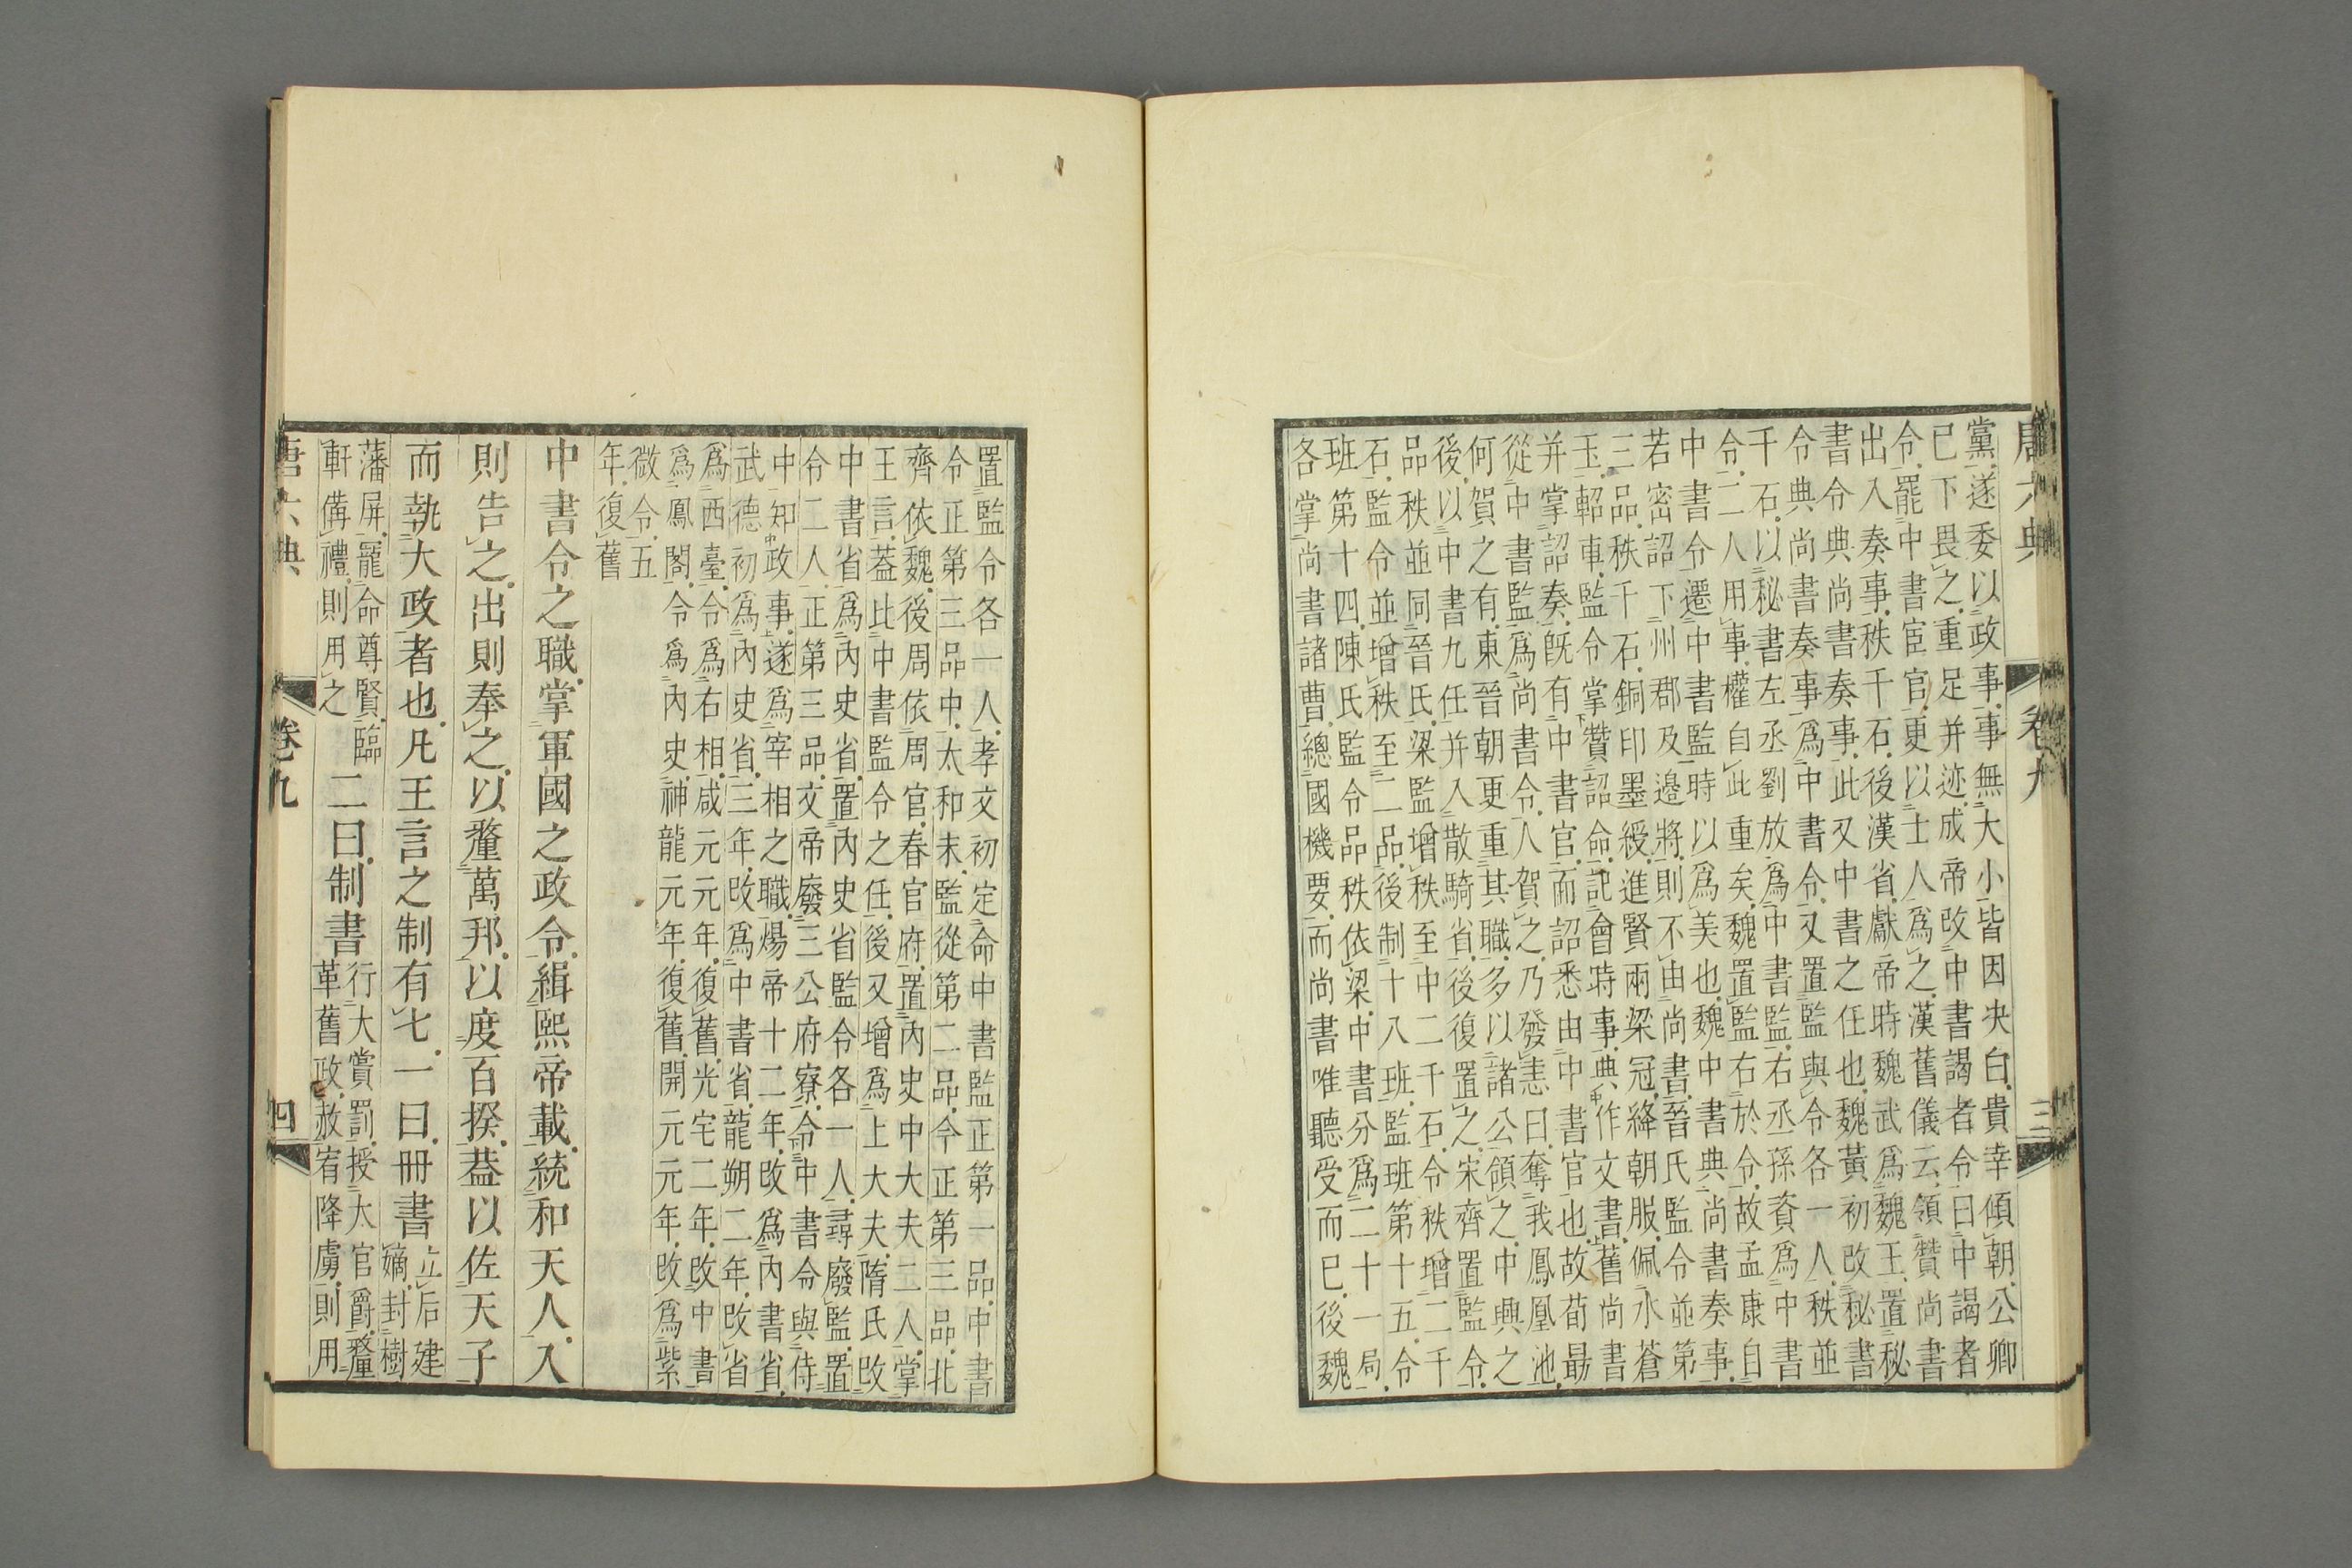 唐六典 卷九 三
黨遂委以政事事無大小皆因决白貴幸傾朝公卿
已下畏之重足并迹成帝改中書謁者令曰中謁者
令罷中書宦官更以士人爲之漢舊儀云領贊尚書
出入奏事秩千石後漢省獻帝時魏武爲魏王置秘
書令典尚書奏事此又中書之任也魏黃初改秘書
令典尚書奏事爲中書令又置監與令各一人秩並
千石以秘書左丞劉放爲中書監右丞孫資爲中書
令二人用事權自此重矣魏置監右於令故孟康自
中書令遷中書監時以爲美也魏中書典尚書奏事
若密詔下州郡及邊將則不由尚書晉氏監令並第
三品秩千石銅印墨綬進賢兩梁冠絳朝服佩水蒼
玉軺車監令掌贊詔命記會時事典作文書舊尚書
并掌詔奏旣有中書官而詔悉由中書官也故荀勗
從中書監爲尚書令人賀之乃發恚曰奪我鳳凰池
何賀之有東晉朝更重其職多以諸公領之中興之
後以中書九任并入散騎省後復置之宋齊置監令
品秩並同晉氏梁監增秩至中二千石令秩增二千
石監令並增秩至二品後制十八班監班第十五令
班第十四陳氏監令品秩依梁中書分爲二十一局
各掌尚書諸曹總國機要而尚書唯聽受而已後魏
置監令各一人孝文初定命中書監正第一品中書
令正第三品中太和末監從第二品令正第三品北
齊依魏後周依周官春官府置內史中大夫二人掌
王言蓋比中書監令之任後又增爲上大夫隋氏改
中書省爲內史省置內史省監令各一人尋廢監置
令二人正第三品文帝廢三公府寮令中書令與侍
中知政事遂爲宰相之職煬帝十二年改爲內書省
武德初爲內史省三年改爲中書省龍朔二年改省
爲西臺令爲右相咸元元年復舊光宅二年改中書
爲鳳閣令爲內史神龍元年復舊開元元年改爲紫
微令五
年復舊
中書令之職掌軍國之政令緝熙帝載統和天人入
則告之出則奉之以釐萬邦以度百揆葢以佐天子
而執大政者也凡王言之制有七一曰冊書立后建嫡封樹
藩屏寵命尊賢臨軒備禮則用之二曰制書行大賞罰授大官爵釐革舊政赦宥降虜則用
唐六典 卷九 四